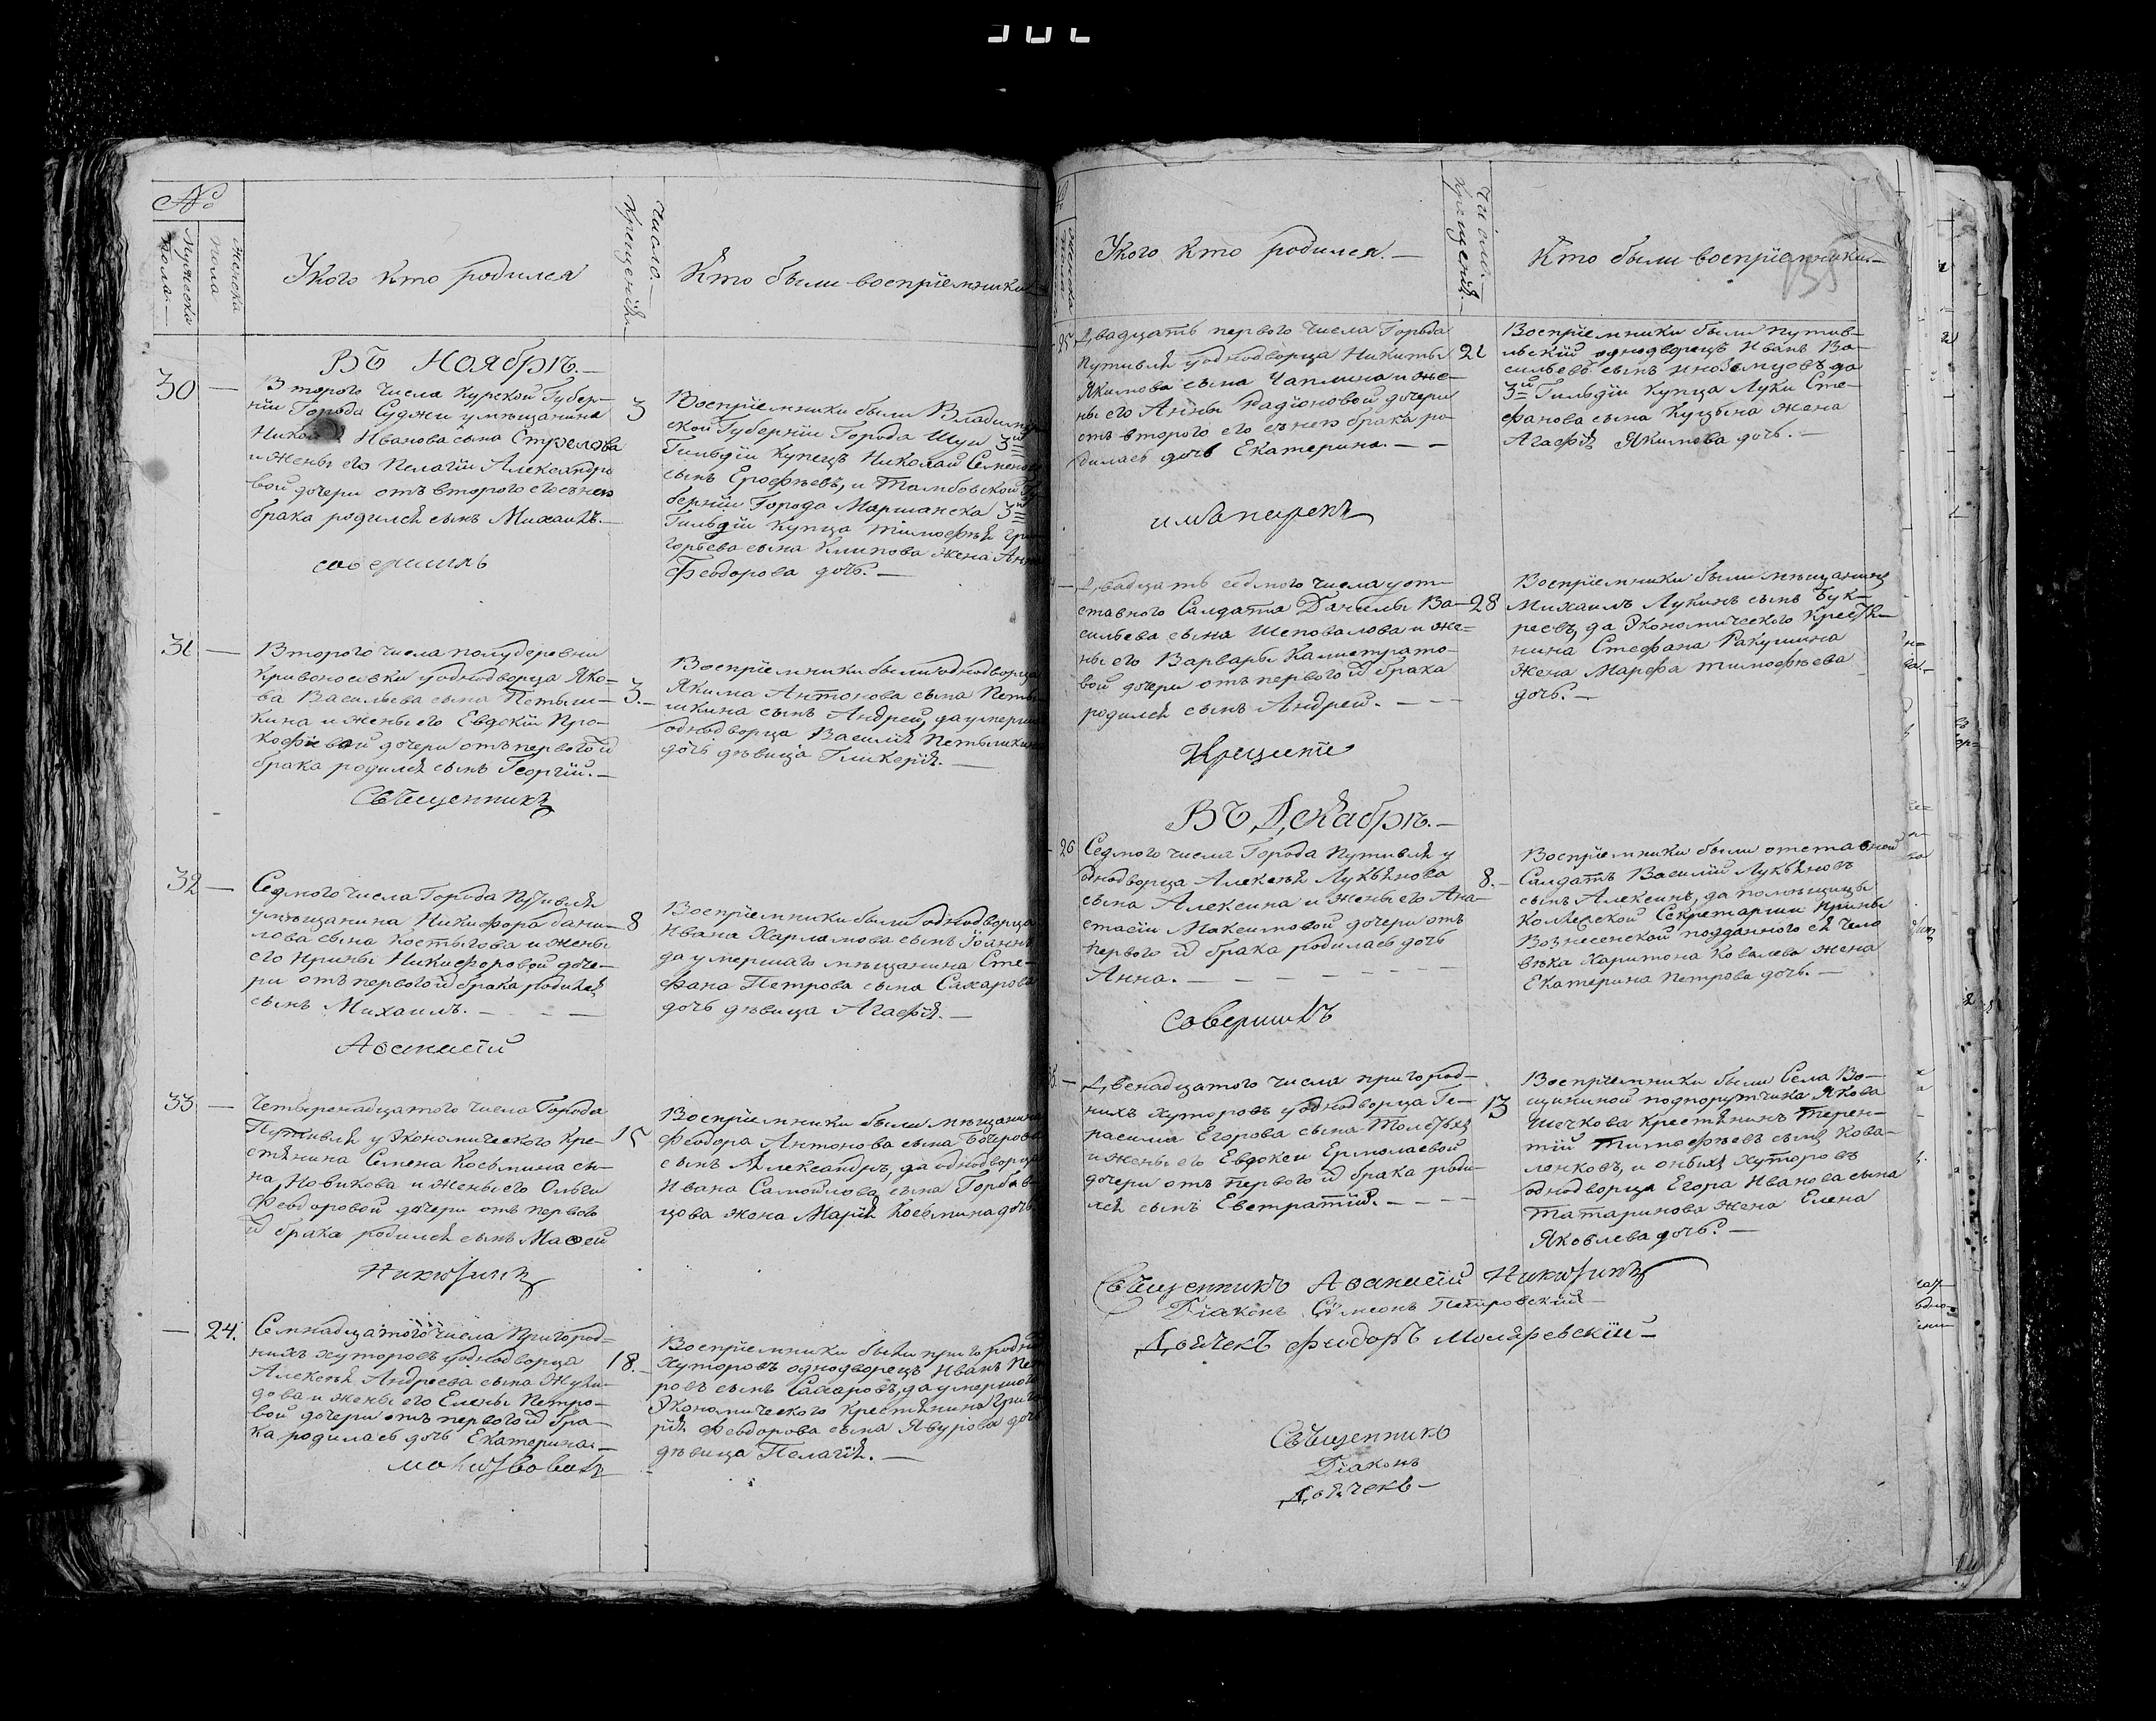 №
Мужеска пола.—
Женска пола
У кого кто родился
Число крещенiя.—
Кто были воспрiемники
Въ Ноябрѣ.—
30 —
Второго числа Курской Губер-
нiи Города Суджи у мѣщанина
Ивanова сына Стрелкова
и жены его Пелагiи Александро
вой дочери отъ второго его с нею
брака родился сынъ Михаилъ.—
совершилъ
3
Воспрiемники были Владимир
ской Губернiи Города Шуи 3й
Гильдiи купецъ Николай Семенов
сынъ Ерофѣевъ, и Тамбовской Гу
бернiи Города Моршанска 3й
Гильдiи купца Тимофѣя Гри
горьева сына Климова жена Анна
Феодорова дочь.—
31 —
Второго числа полудеревни
Кривоносовки у однодворца Яко-
ва Васильева сына Петыш-
кина и жены его Евдокiи Про-
кофiевой дочери отъ первого iй
брака родился сынъ Георгiй.—
Священникъ
3.—
Воспрiемники были однодворца
Якима Антонова сына Петы
шкина сынъ Андрей, да умерш
однодворца Василiя Петышкина
дочь дѣвица Гликерiя.—
32 —
Седмого числа Города Путивля
у мѣщанина Никифора Дани-
лова сына Костыгова и жены
его Ирины Никифоровой доче-
ри отъ первого iй брака родился
сынъ Михаилъ. — — —
Аѳанасiй
8
Воспрiемники были однодворца
Ивана Харламова сынъ Iоаннъ
да умершаго мѣщанина Сте-
фана Петрова сына Сахарова
дочь дѣвица Агафiя.—
33 —
Четыренадцатого числа Города
Путивля у Экономического кре-
стянина Семена Косьмина сы-
на Новикова и жены его Ольги
Феодоровой дочери отъ первого
iй брака родился сынъ Маѳей
Никитинъ
15
Воспрiемники были мѣщанина
Феодора Антонова сына Бочарова
сынъ Александръ, да однодворца
Ивана Самойлова сына Горбов
цова жена Марiя Косьмина дочь.
— 24.
Семнадцатого числа Пригород-
нихъ хуторовъ у однодворца
Алексѣя Андреева сына Жули-
дова и жены его Елены Петро-
вой дочери отъ первого iй бра-
ка родилась дочь Екатерина.—
18.—
Воспрiемники были пригородни
хуторовъ однодворецъ Иванъ Пет
ровъ сынъ Сахаровъ, да умершого
Экономического крестянина Григо
рiя Феодорова сына Явурова дочь
дѣвица Пелагiя.—
У кого кто родился.—
Число крещенiя.—
Кто были воспрiемники.—
25
Двадцать первого числа Города
Путивля у однодворца Никиты
Якимова сына Чаплина и же-
ны его Анны Радiоновой дочери
отъ второго его с нею брака ро-
дилась дочь Екатерина.— —
21
Воспрiемники были путив-
льскiй однодворецъ Иванъ Ва-
сильевъ сынъ Иноземцовъ да
3й Гильдiи купца Луки Сте-
фанова сына Куцына жена
Агафiя Якимова дочь.—
Двадцать седмого числа у от-
ставного Салдата Данилы Ва-
сильева сына Шеповалова и же-
ны его Варвары Калистрато-
вой дочери отъ первого iй брака
родился сынъ Андрей. — — —
28
Воспрiемники были мѣщанинъ
Михаилъ Лукинъ сынъ Бук-
реевъ, да Экономического крестя-
нина Стефана Ракушина
жена Марфа Тимофѣева
дочь.—
Въ Декабрѣ.—
26
Седмого числа Города Путивля у
однодворца Алексѣя Лукьянова
сына Алехина и жены его Ана-
стасiи Максимовой дочери отъ
первого iй брака родилась дочь
Анна. — — — — —
совершилъ
8.—
Воспрiемники были отставной
Салдатъ Василiй Лукьяновъ
сынъ Алехинъ, да помѣщицы
Коллежской Секретарши Ирины
Вознесенской подданного ея чело
вѣка Харитона Ковалева жена
Екатерина Петрова дочь.—
Двенадцатого числа пригород-
нихъ хуторовъ у однодворца Ге-
расима Егорова сына Толстыхъ
и жены его Евдокеи Ермолаевой
дочери отъ первого iй брака роди-
лся сынъ Евстратiй. — — —
13
Воспрiемники были Села Во-
щининой подпорутчика Якова
Шечкова крестянинъ Терен-
тiй Тимофѣевъ сынъ Кова-
ленковъ, и оныхъ хуторовъ
однодворца Егора Иванова сына
Татаринова жена Елена
Яковлева дочь.—
Священникъ Аѳанасiй Никитинъ
Дiаконъ Сѵмеонъ Петровский
Дьячекъ Феодоръ Моляревскiй—
Священникъ
Дiаконъ
Дьячекъ—